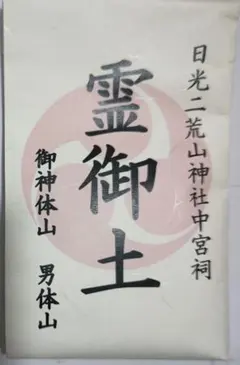 日光二荒山神社中宮祠
霊御土
御神体山 男体山